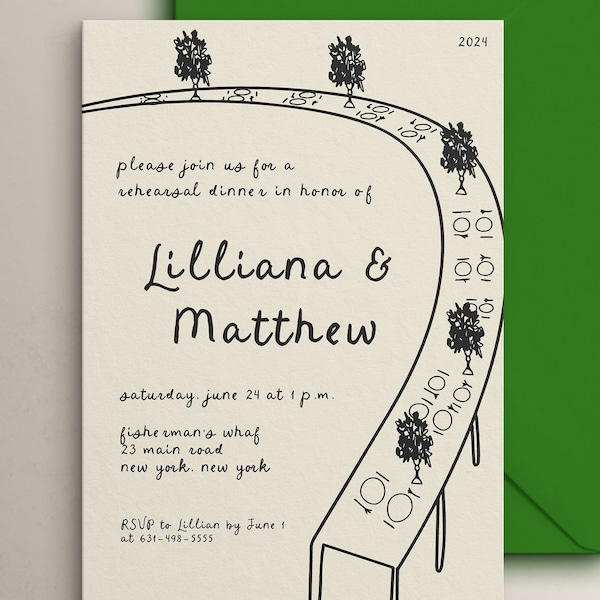 2024
please join us for a
rehearsal dinner in honor of
Lilliana &
Matthew
saturday. june 24 at 1 p.m.
fisherman's whaf
23 main road
new york. new york
RSVP to Lillian by June 1
at 631-498-5555